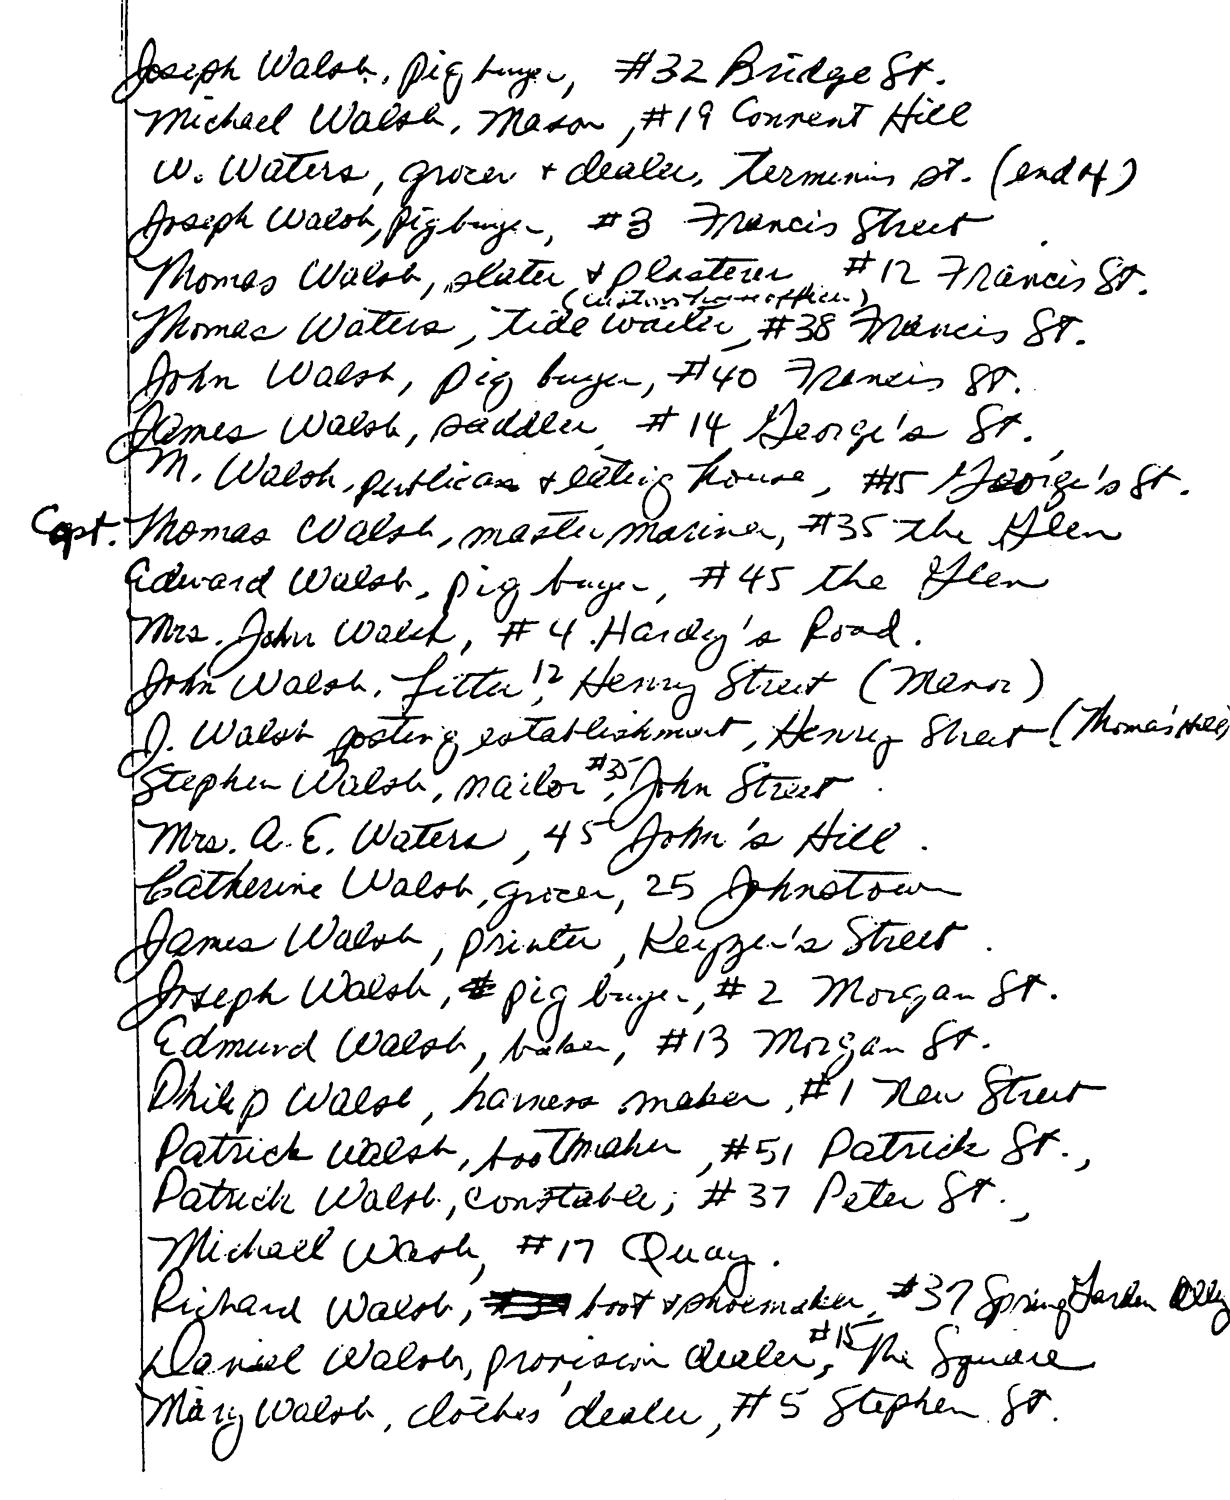 Joseph Walsh, pig buyer, #32 Bridge St.
Michael Walsh, Mason, #19 Convent Hill
W. Waters, grocer + dealer, Terminus st. (end of)
Joseph Walsh, pig buyer, #3 Francis Street
Thomas Walsh, slater & plasterer #12 Francis St.
(custom house officer)
Thomas Waters, tide waiter, #38 Francis St.
John Walsh, pig buyer, #40 Francis St.
James Walsh, saddler #14 George's St.
M. Walsh, publican & eating house, #15 George's St.
Capt. Thomas Walsh, master mariner, #35 the Glen
Edward Walsh, pig buyer, #45 the Glen
Mrs. John Walsh, #4 Hardy's Road.
John Walsh, fitter, 12 Henry Street (Manor)
J. Walsh posting establishment, Henry Street (Thomas' Hill)
Stephen Walsh, nailor, #35 John Street
Mrs. A. E. Waters, 45 John's Hill.
Catherine Walsh, grocer, 25 Johnstown
James Walsh, printer, Keyzer's Street.
Joseph Walsh, pig buyer, #2 Morgan St.
Edmund Walsh, baker, #13 Morgan St.
Philip Walsh, harness maker, #1 New Street
Patrick Walsh, bootmaker, #51 Patrick St.,
Patrick Walsh, constable, #37 Peter St.,
Michael Wash, #17 Quay.
Richard Walsh, boot & shoemaker, #37 Spring Garden Alley
Daniel Walsh, provision dealer, #15 The Square
Mary Walsh, clothes dealer, #5 Stephen St.